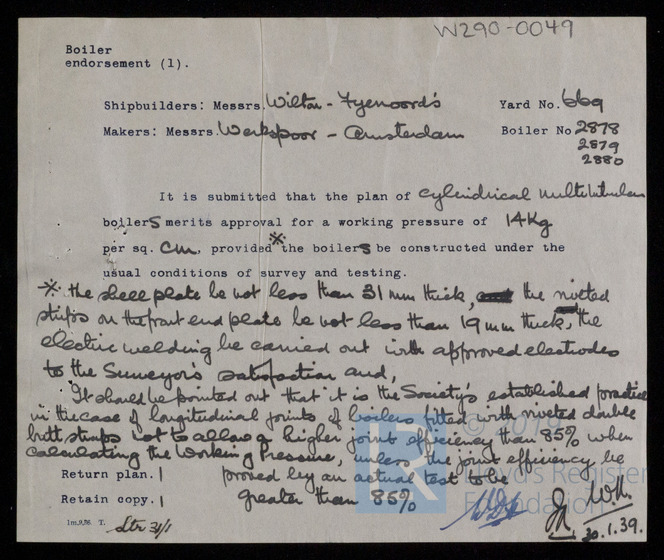 W290-0049
Boiler
endorsement (1).
Shipbuilders: Messrs. Wilton-Fyenoord's Yard No. 669
Makers: Messrs. Werkspoor - Amsterdam Boiler No 2878
2879
2880
It is submitted that the plan of cylindrical multitubular
boilers merits approval for a working pressure of 14 Kg
per sq. cm, provided ※ the boilers be constructed under the
usual conditions of survey and testing.
※ the shell plate be not less than 31 mm thick, the riveted
strips on the front end plate be not less than 19 mm thick, the
electric welding be carried out with approved electrodes
to the Surveyor's satisfaction and,
It should be pointed out that it is the Society's established practice
in the case of longitudinal joints of boilers fitted with riveted double
butt straps not to allow a higher joint efficiency than 85% when
calculating the Working Pressure, unless the joint efficiency be
Return plan. 1 proved by an actual test to be
Retain copy. 1 greater than 85%
1m.9,36 T. Ltr 31/1
W.H.
30.1.39.
© 2019
Lloyd's Register
Foundation
LR